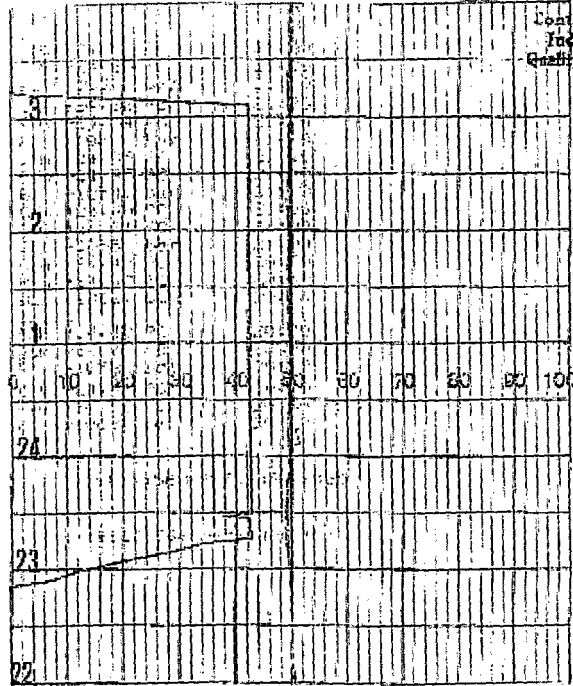 3
2
1
0 10 20 30 40 50 60 70 80 90 100
24
23
22